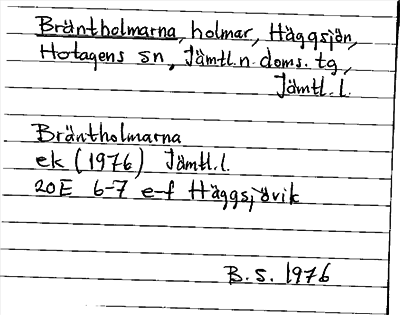 Bräntholmarna, holmar, Häggsjön,
Hotagens sn, Jämtl.n.doms.tg,
Jämtl.l.
Bräntholmarna
ek (1976) Jämtl.l.
20E 6-7 e-f Häggsjövik
B.S. 1976